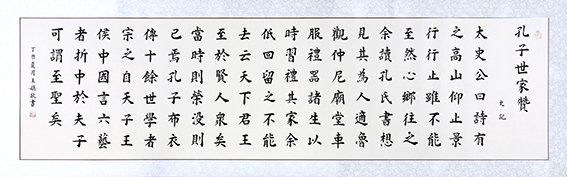 孔子世家贊
史記
太史公曰詩有
之高山仰止景
行行止雖不能
至然心鄉往之
余讀孔氏書想
見其為人適魯
觀仲尼廟堂車
服禮器諸生以
時習禮其家余
低回留之不能
去云天下君王
至於賢人衆矣
當時則榮没則
已焉孔子布衣
傳十餘世學者
宗之自天子王
侯中國言六藝
者折中於夫子
可謂至聖矣
丁酉夏月